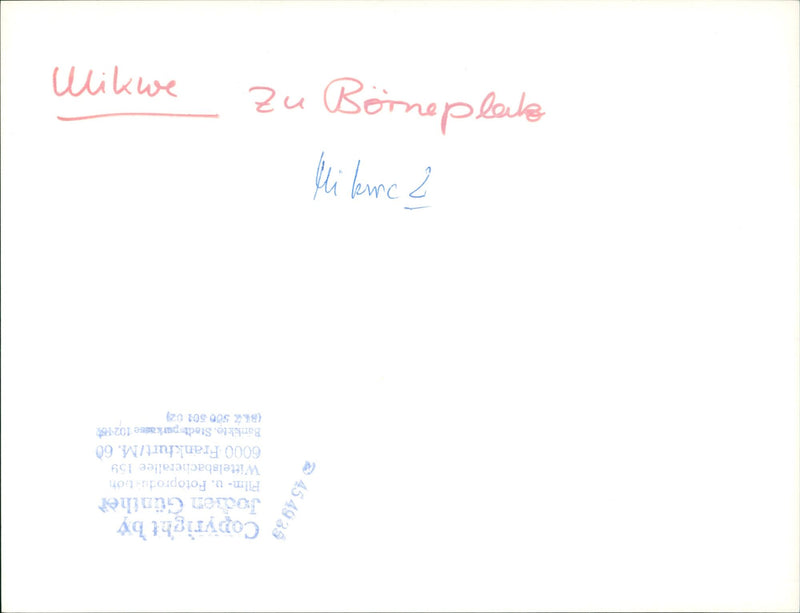 Mikwe zu Börneplatz
Mikwe 2
Copyright by
Jochen Günther
Film- u. Fotoproduktion
Wittelsbacherallee 159
6000 Frankfurt/M. 60
Bankkto. Stadtsparkasse
(BLZ 500 501 02)
454939